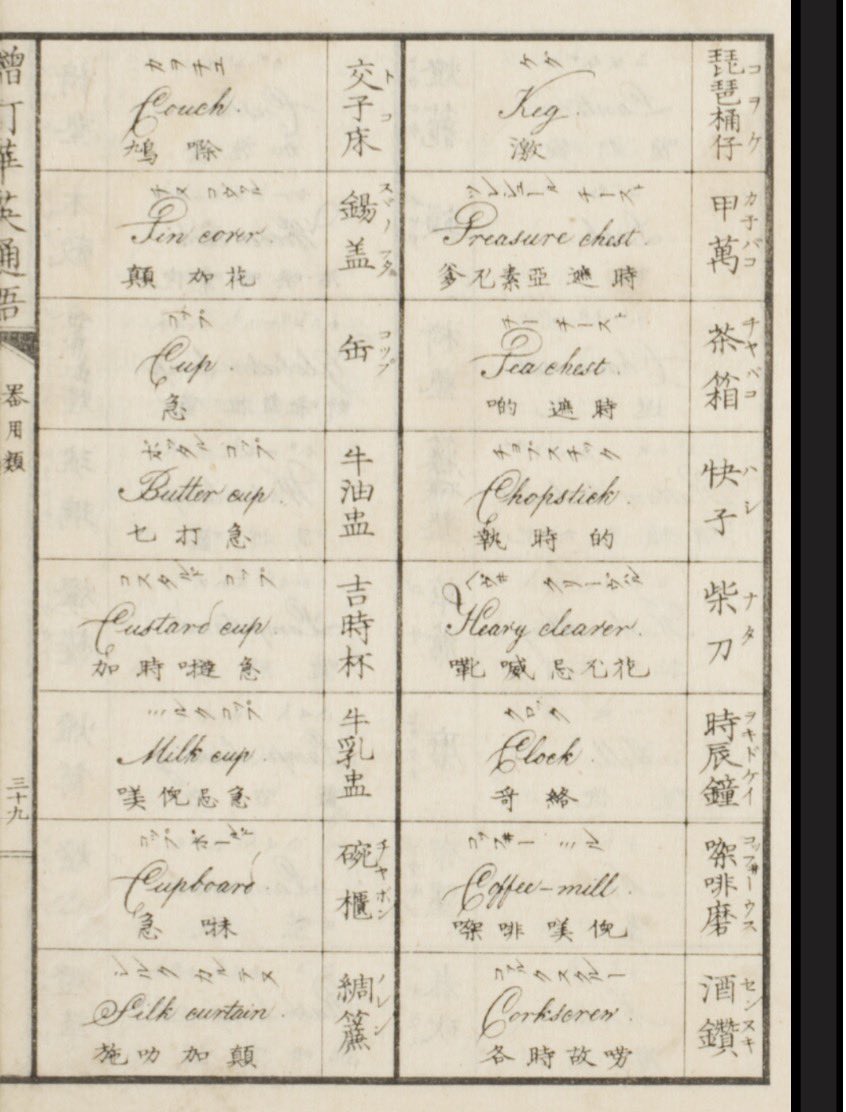 琵琶桶仔
コヲケ
ケグ
Keg.
激
甲萬
カチバコ
ツレシュール チースト
Treasure chest.
爹尺素亞 遮時
茶箱
チヤバコ
チー チースト
Tea chest.
啲 遮時
快子
ハシ
チヨプスチツク
Chopstick.
執時的
柴刀
ナタ
Heavy cleaver.
嚈喊忌尺花
時辰鐘
ヲキドケイ
クロック
Clock.
哥絡
㗎啡磨
コッフ井ーウス
コッフ井ー ミル
Coffee-mill.
㗎啡 嘆倪
酒鑽
センヌキ
コルクスクルー
Corkscrew.
各時故嘮
交子床
トコ
カヲチエ
Couch.
鳩嚓
錫盖
スヾノフタ
チヌ コウル
Tin cover.
顛 加花
缶
コツプ
コプ
Cup.
急
牛油盅
ボッタル コップ
Butter cup.
七打急
吉時杯
コスタルド コップ
Custard cup.
加時噠急
牛乳盅
ミルクコップ
Milk cup.
嘆倪忌急
碗櫃
チヤボン
コップボールド
Cupboard.
急㕸
綢簾
ノレン
シルク カルテヌ
Silk curtain.
施叻加顛
增訂華英通語
器用類
三十九